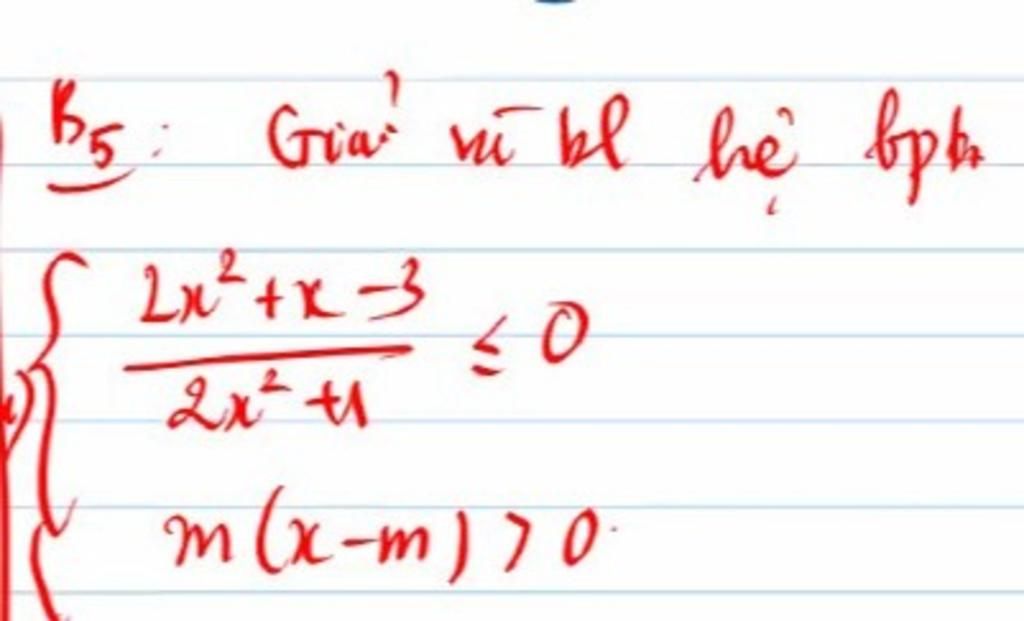 B5: Giải và bl hệ bpt
2x² + x - 3
≤ 0
2x² + 1
m(x - m) > 0